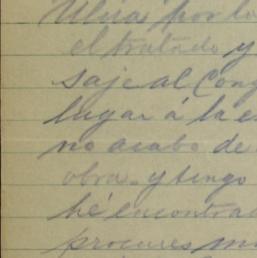 Ulua por lo
el tratado y
saje al Cong
lugar á la e
no acabo de
obra - y tengo
hé encontrad
procures m